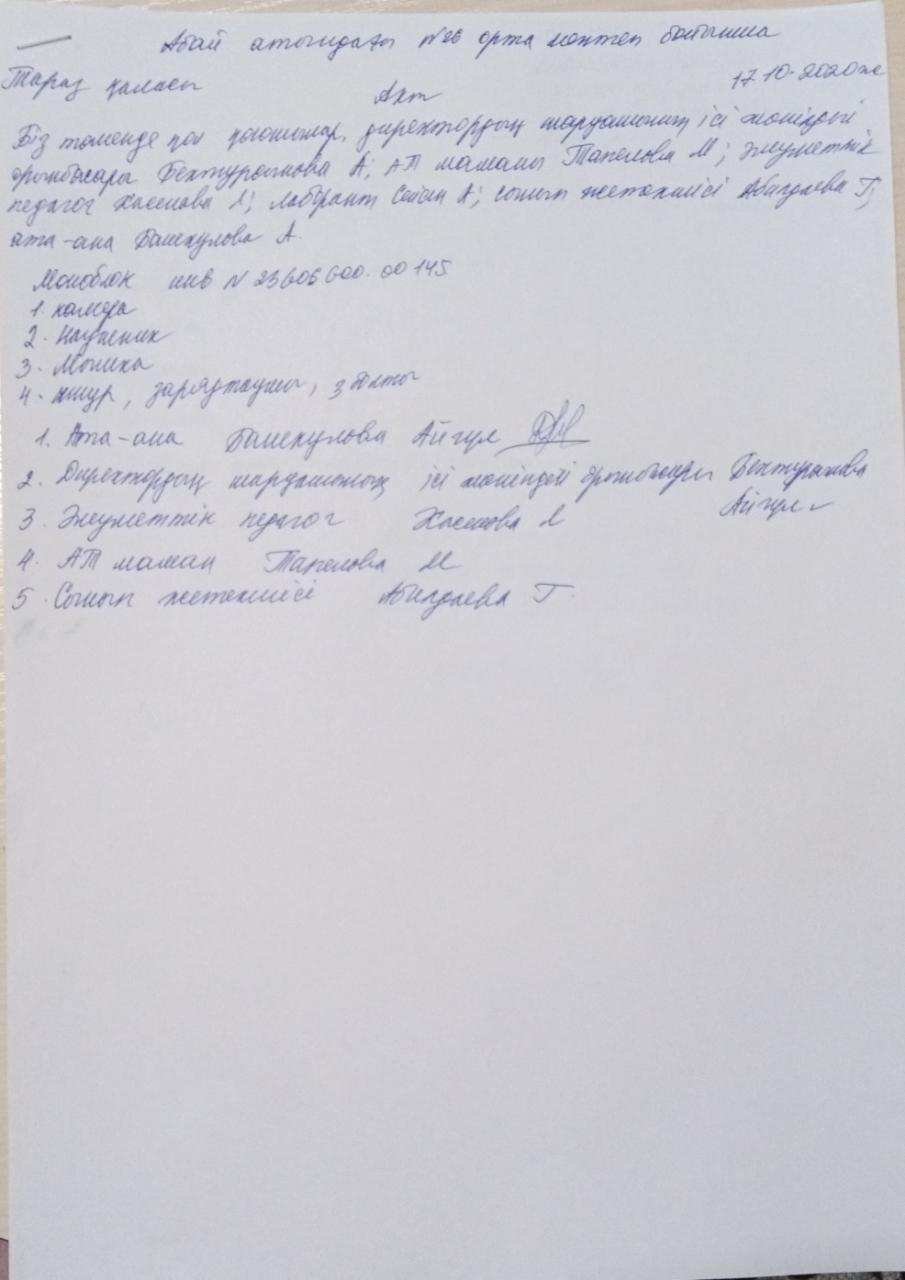 Абай атындағы №26 орта мектеп бойынша
Тараз қаласы 17.10.2020ж
Акт
Біз төменде қол қоюшылар, директордың шаруашылық ісі жөніндегі
орынбасары Бектурганова А; АТ маманы Тапелова М; Әлеуметтік
педагог Хасенова Л; лаборант А; сынып жетекшісі Абилдаева Г;
ата-ана Башекулова А.
Моноблок инв № 23606600.00145
1. камера
2. Наушник
3. Мышка
4. шнур, зарядтаушы, 3 болты
1. Ата-ана Башекулова Айгул
2. Директордың шаруашылық ісі жөніндегі орынбасары Бектурганова
Айгул
3. Әлеуметтік педагог Хасенова Л
4. АТ маман Тапелова М
5. Сынып жетекшісі Абилдаева Г.